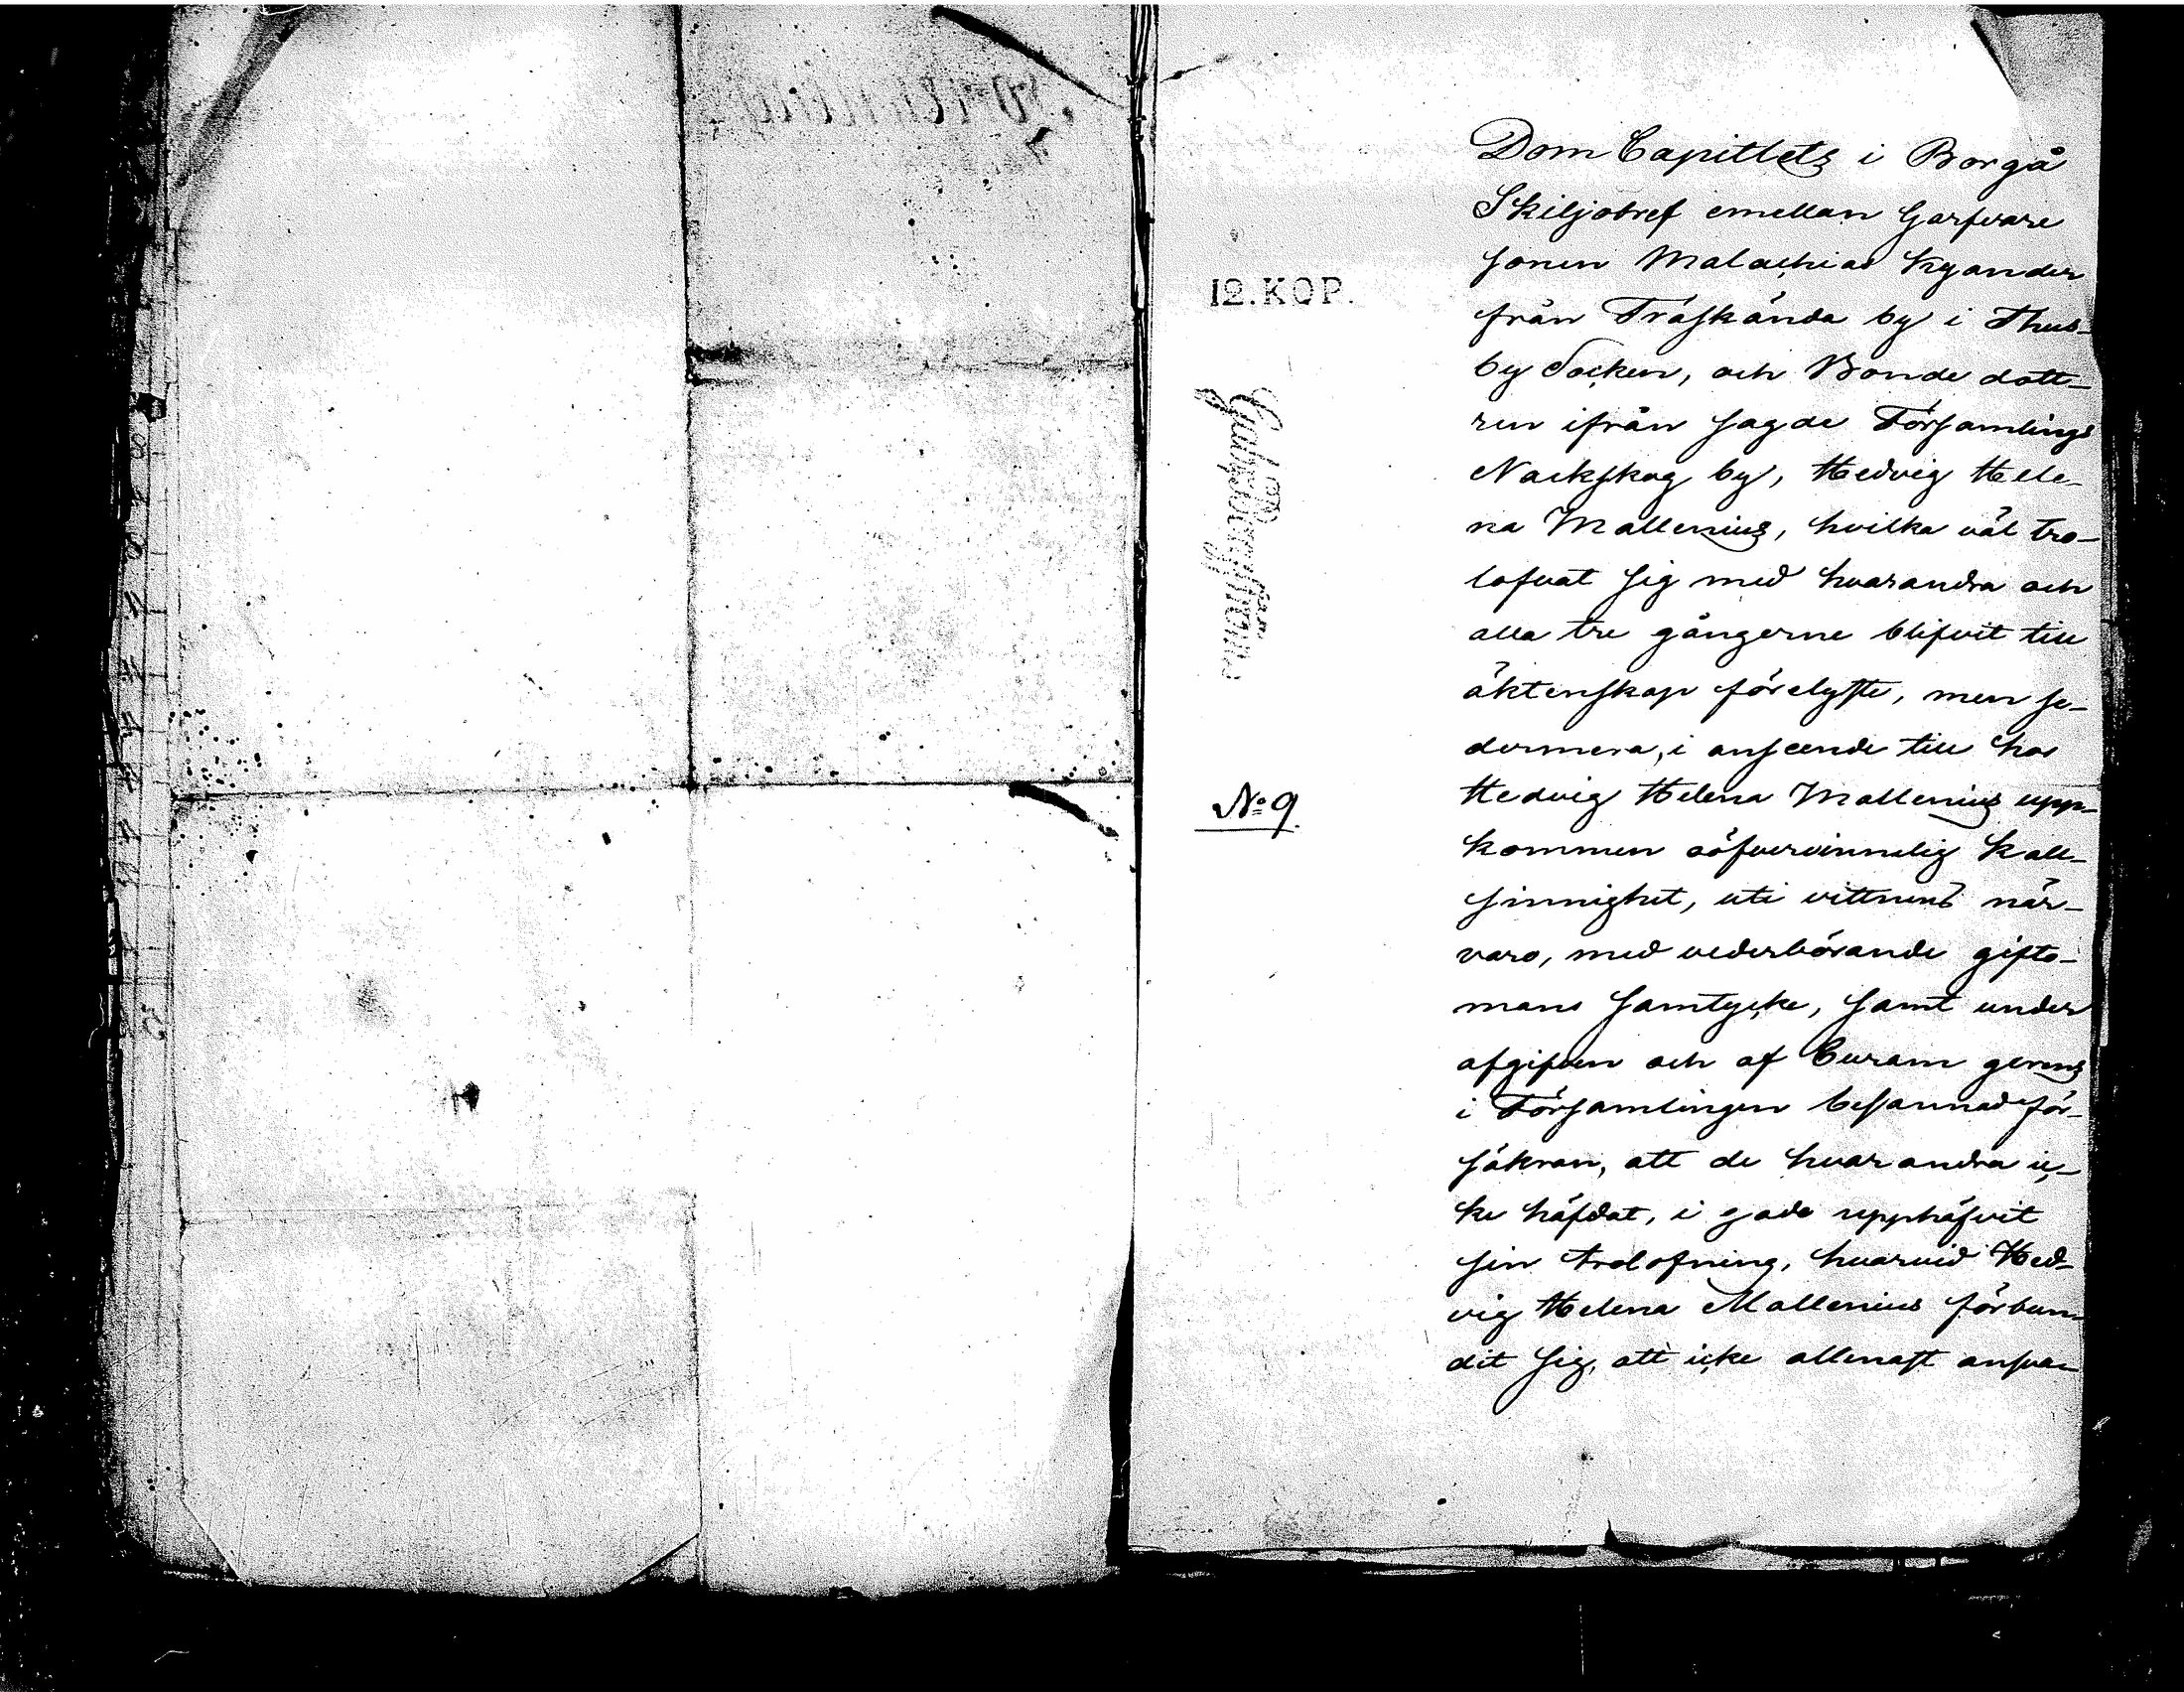 12. KOP.
No 9.
Dom Capitlets i Borgå
Skiljobref emellan Garfvare
sonen Malachias Kyander
från Träskända by i Thus-
by Socken, och Bonde dott-
ren ifrån sagde Församlings
Nackskog by, Hedvig Hele-
na Mallenius, hvilka väl tro-
lofvat sig med hvarandra och
alla tre gångerne blifvit till
äktenskap förelyste, men se-
dermera, i anseende till hos
Hedvig Helena Mallenius upp-
kommen oöfvervinnelig kall-
sinnighet, uti vittnens när-
varo, med vederbörande gifto-
mans samtycke, samt under
afgifven och af Curam gerens
i Församlingen besannad för-
säkran, att de hvarandra ic-
ke häfdat, i godo upphäfvit
sin trolofning, hvarvid Hed-
vig Helena Mallenius förbun-
dit sig, att icke allenast ansva-